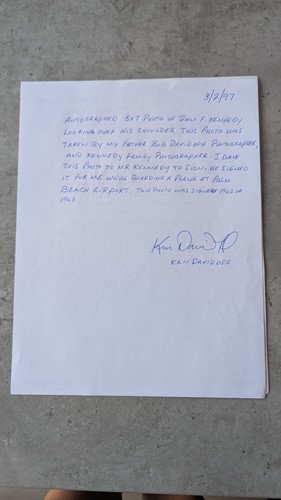 8/2/97
AUTOGRAPHED 8x7 PHOTO OF JOHN F. KENNEDY
LOOKING OVER HIS SHOULDER. THIS PHOTO WAS
TAKEN BY MY FATHER BOB DAVIDOFF PHOTOGRAPHER,
AND KENNEDY FAMILY PHOTOGRAPHER. I GAVE
THIS PHOTO TO MR KENNEDY TO SIGN. HE SIGNED
IT FOR ME WHILE BOARDING A PLANE AT PALM
BEACH AIRPORT. THIS PHOTO WAS SIGNED 1962 OR
1963.
Ken Davidoff
KEN DAVIDOFF